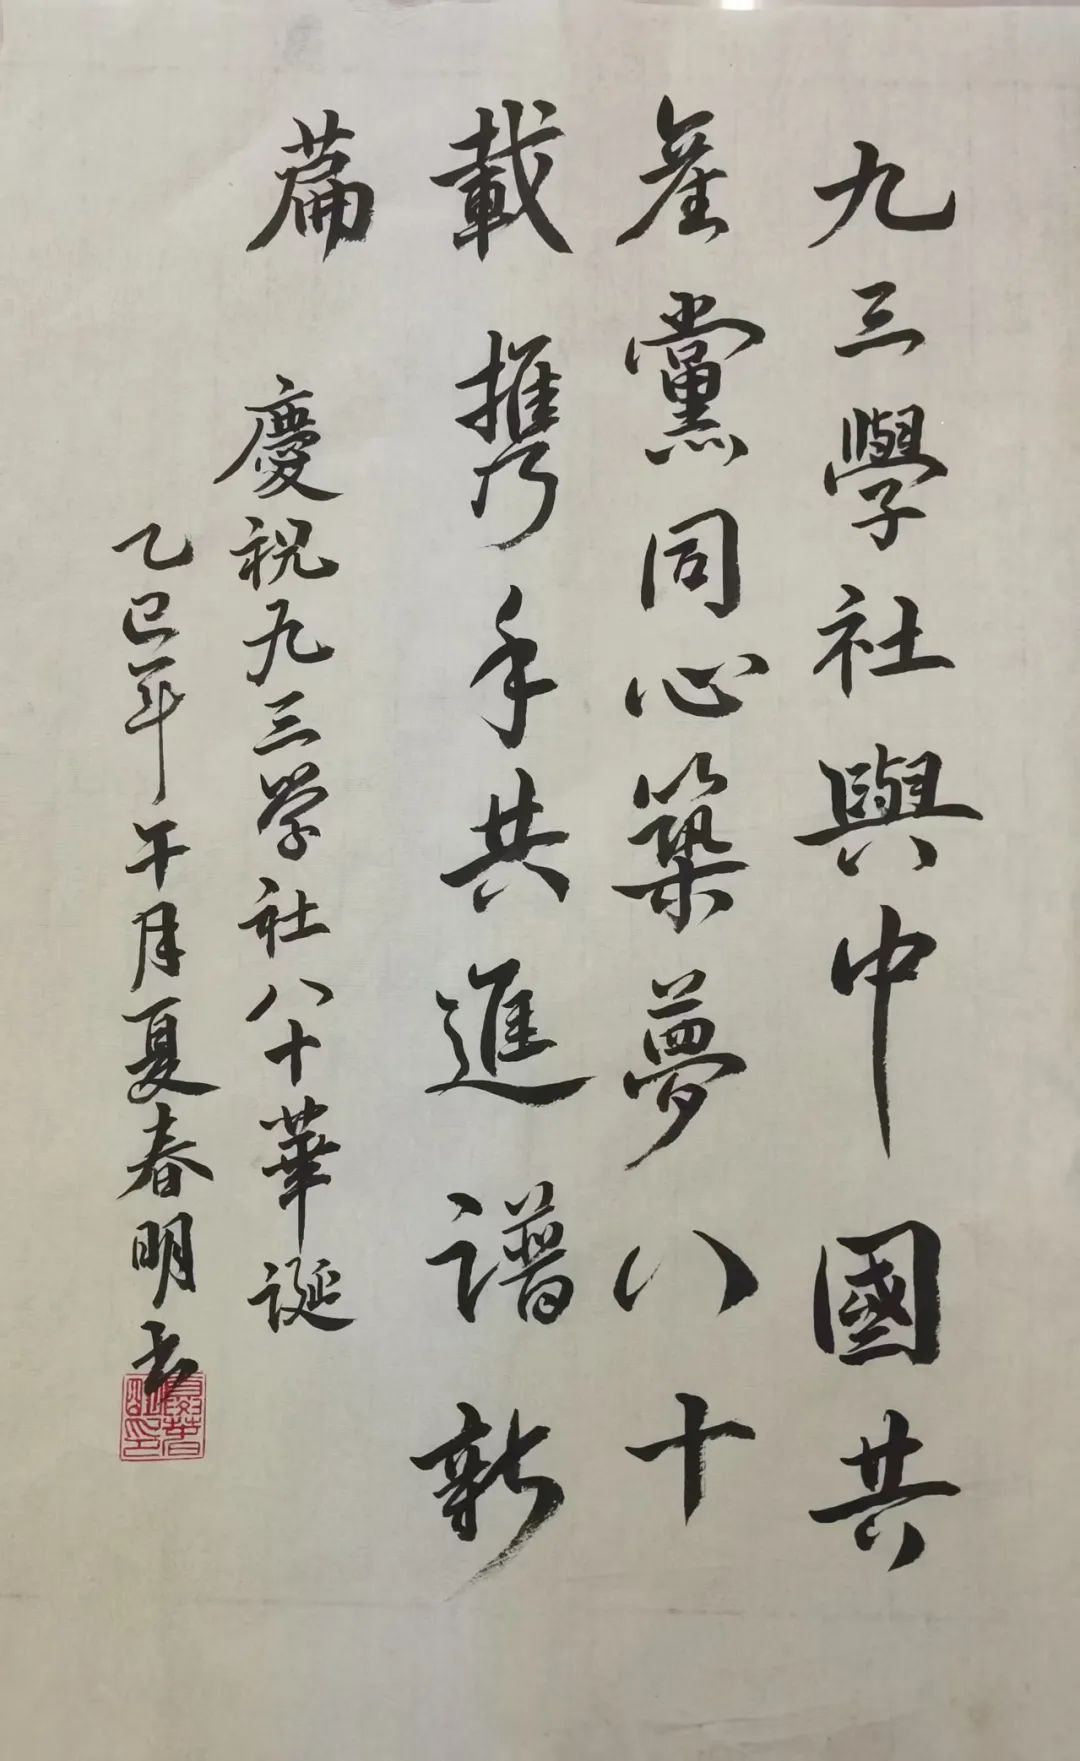 九三學社與中國共
產黨同心築夢八十
載携手共進譜新
篇
慶祝九三学社八十華誕
乙巳年午月夏春明书